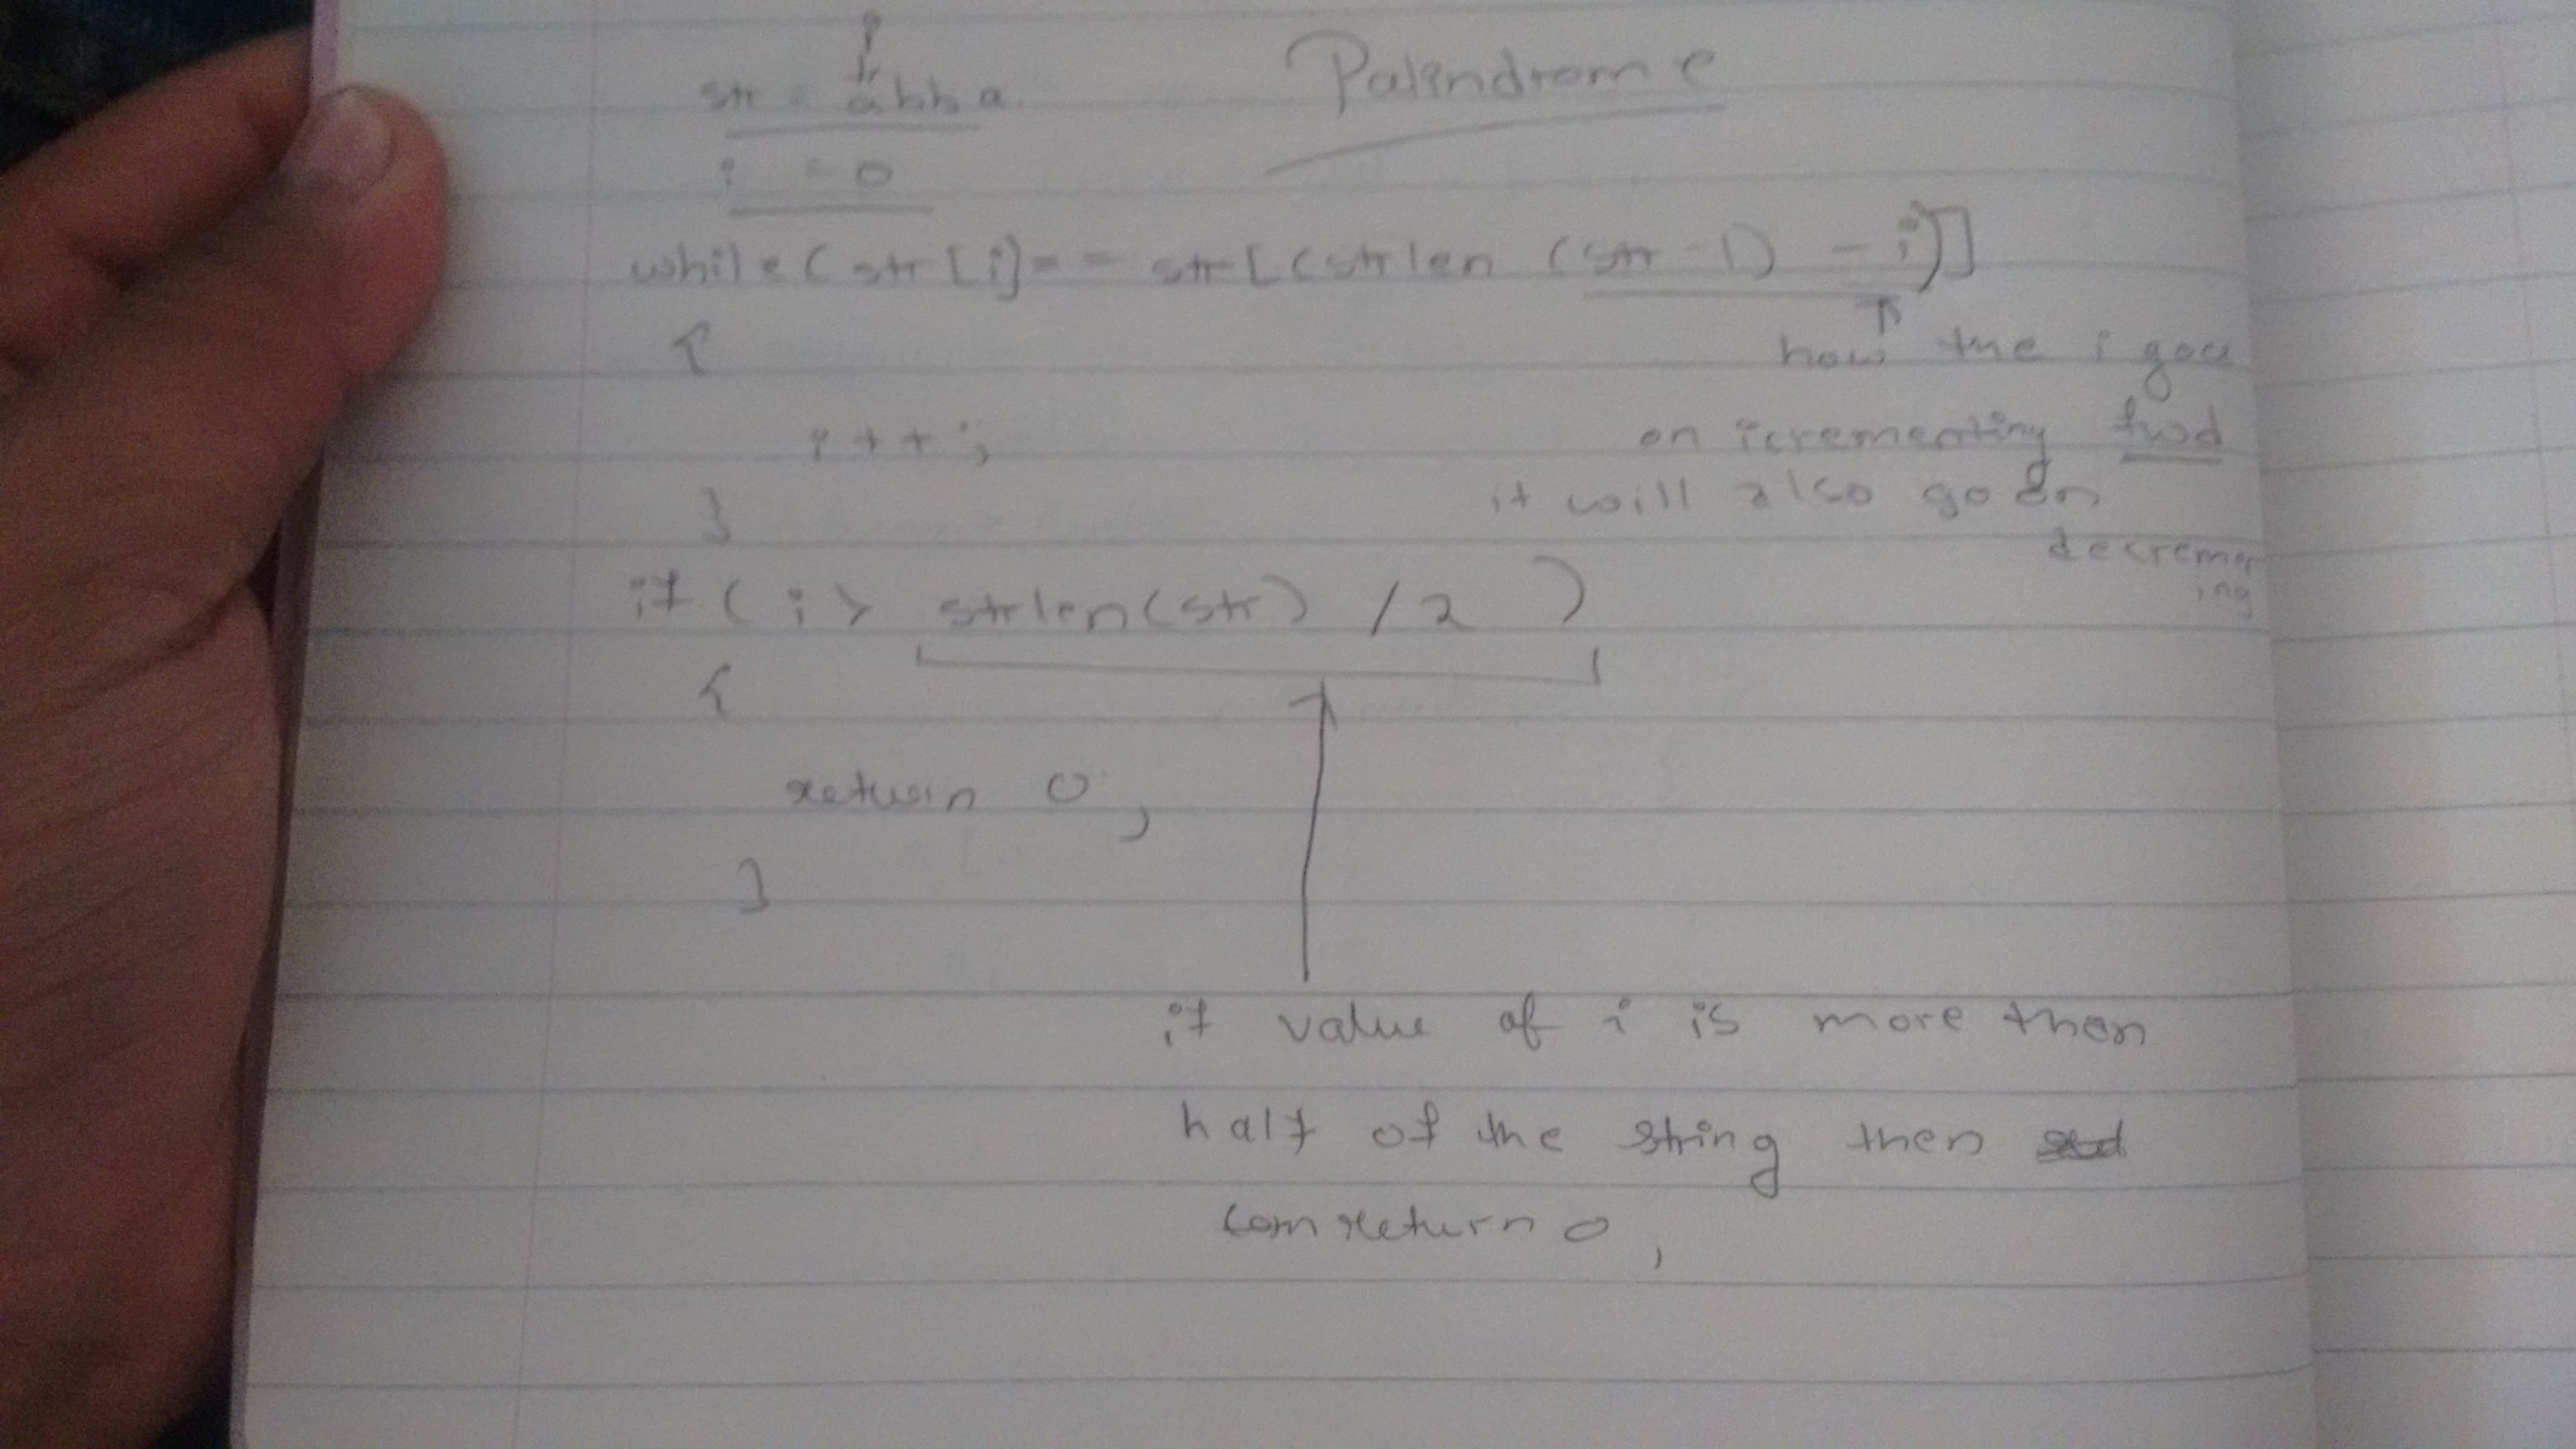 Palindrome
str = abba
i = 0
while ( str [i] == str [ (strlen (str -1) - i)]
{
how the i goes
i++;
on icrementing fwd
it will also go on
}
decrement
ing
if ( i > strlen(str) / 2 )
{
return 0;
}
if value of i is more then
half of the string then
return 0;